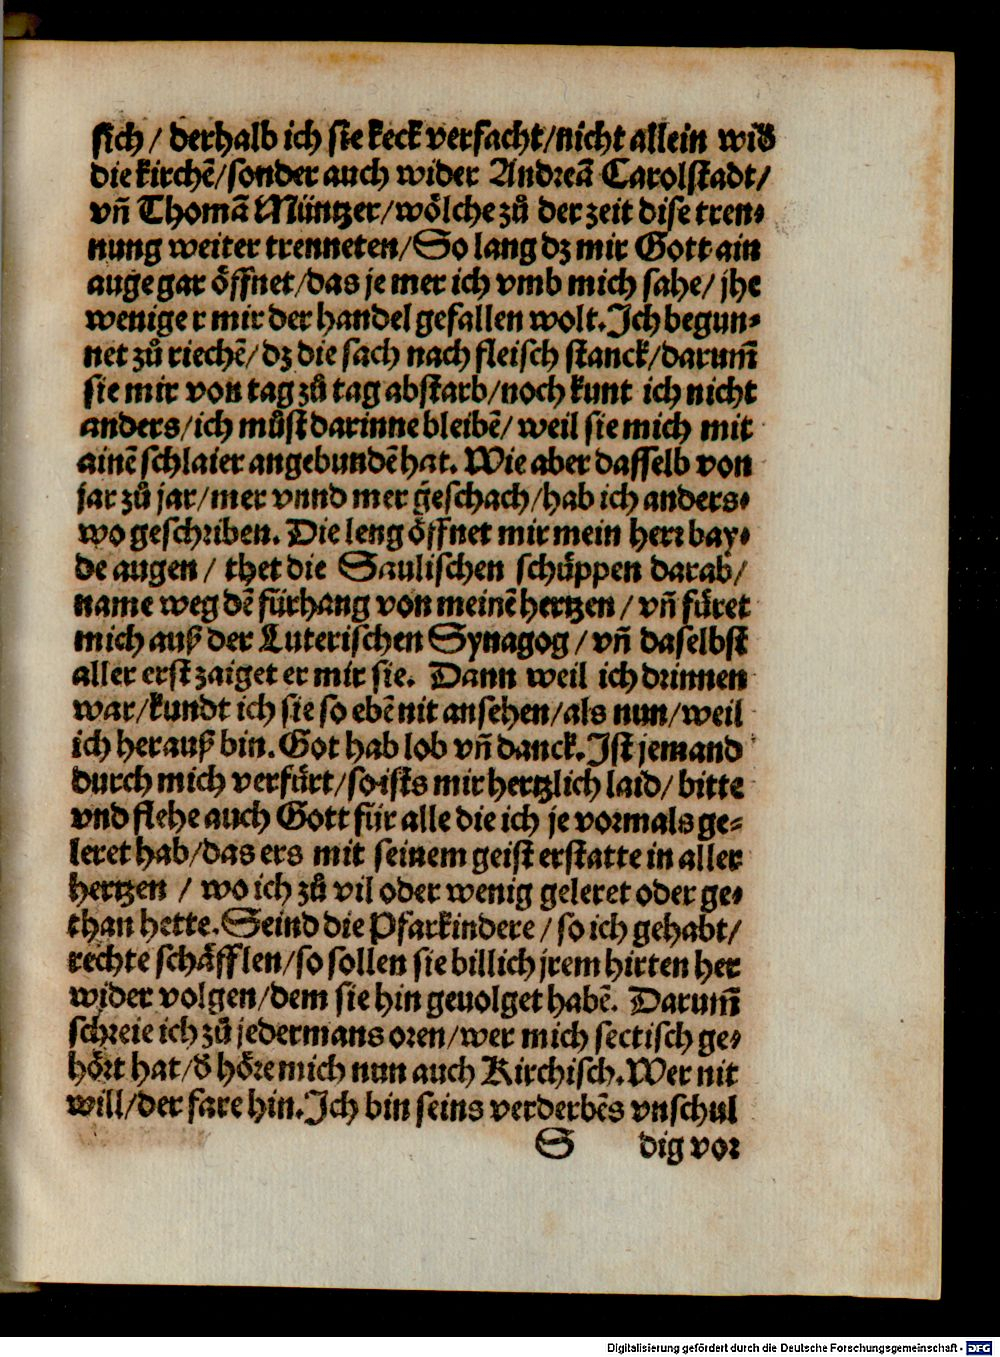 sich / derhalb ich sie keck verfacht/nicht allein wid̄
die kirchē/sonder auch wider Andreā Carolstadt/
vñ Thomā Müntzer/wölche zů der zeit dise tren⸗
nung weiter trenneten/So lang dz mir Gott ain
auge gar öffnet/das je mer ich vmb mich sahe/ jhe
weniger mir der handel gefallen wolt. Ich begun⸗
net zů riechē/ dz die sach nach fleisch stanck/darum̄
sie mir von tag zů tag abstarb/noch kunt ich nicht
anders/ich můst darinne bleibē/ weil sie mich mit
ainē schlaier angebundē hat. Wie aber dasselb von
jar zů jar/mer vnnd mer geschach/hab ich anders⸗
wo geschriben. Die leng öffnet mir mein herr bay⸗
de augen / thet die Saulischen schüppen darab/
name weg dē fürhang von meinē hertzen / vñ füret
mich auß der Luterischen Synagog / vñ daselbst
aller erst zaiget er mir sie. Dann weil ich drinnen
war/kundt ich sie so ebē nit ansehen/als nun/weil
ich herauß bin. Got hab lob vñ danck. Ist jemand
durch mich verfürt/so ists mir hertzlich laid/ bitte
vnd flehe auch Gott für alle die ich je vormals ge⸗
leret hab/das ers mit seinem geist erstatte in aller
hertzen / wo ich zů vil oder wenig geleret oder ge⸗
than hette. Seind die Pfarkindere / so ich gehabt/
rechte schäfflen/so sollen sie billich jrem hirten her
wider volgen/dem sie hin geuolget habē. Darum̄
schreie ich zů jedermans oren/wer mich sectisch ge⸗
hört hat/d̄ höre mich nun auch Kirchisch. Wer nit
will/der fare hin. Ich bin seins verderbēs vnschul
S dig vor
Digitalisierung gefördert durch die Deutsche Forschungsgemeinschaft - DFG